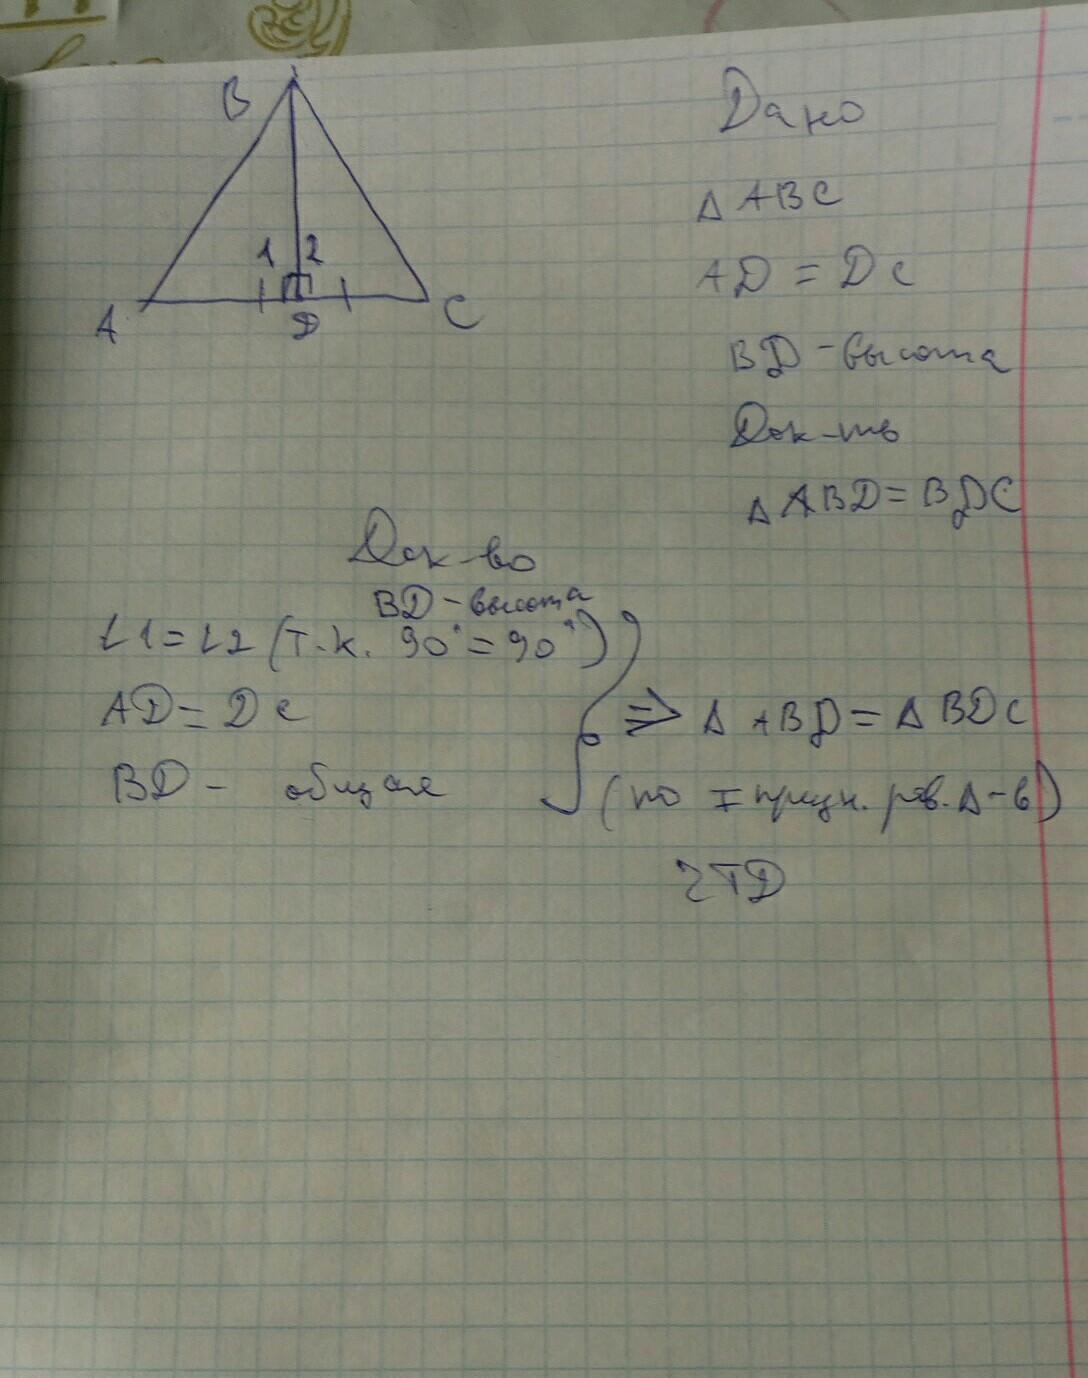 B
1 2
A D C
Дано
Δ ABC
AD = DC
BD - высота
Док-ть
Δ ABD = BDC
Док-во
BD - высота
∠1 = ∠2 (т.к. 90° = 90°)
AD = DC
BD - общая
⇒ Δ ABD = Δ BDC
(по I призн. рав. Δ-в)
ЧТД